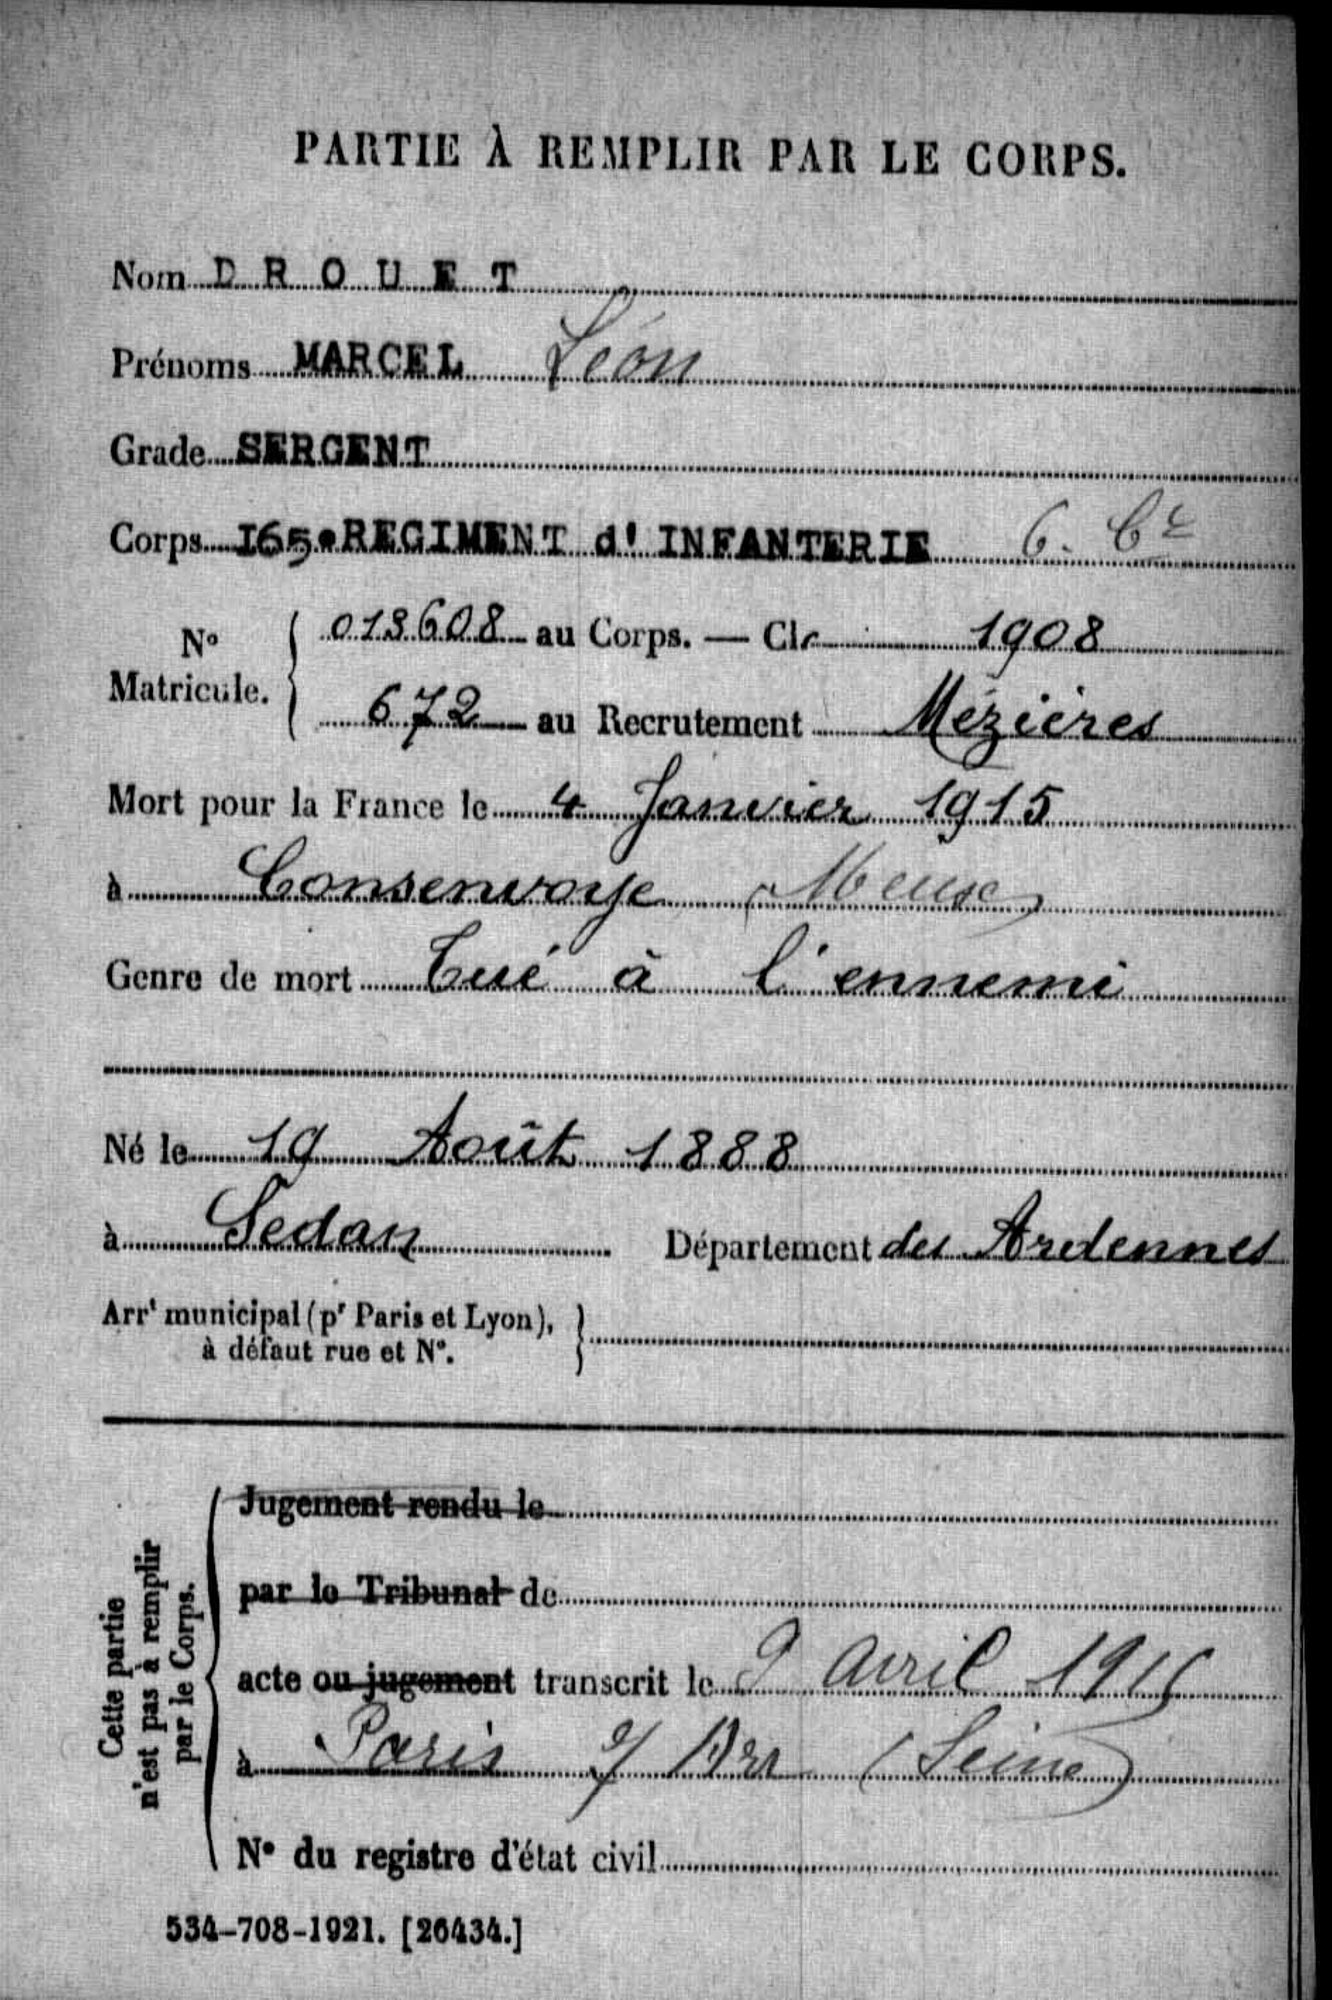 PARTIE À REMPLIR PAR LE CORPS.
Nom DROUET
Prénoms MARCEL Léon
Grade SERGENT
Corps I65e REGIMENT d' INFANTERIE 6. Cie
No Matricule. { 013608 au Corps. — Cl. 1908
672 au Recrutement Mézières
Mort pour la France le 4 Janvier 1915
à Consenvoye (Meuse)
Genre de mort Tué à l'ennemi
Né le 19 Août 1888
à Sedan Département des Ardennes
Arrt municipal (pr Paris et Lyon),
à défaut rue et No.
Cette partie
n'est pas à remplir
par le Corps.
Jugement rendu le
par le Tribunal de
acte ou jugement transcrit le 9 avril 1915
à Paris Arr (Seine)
No du registre d'état civil
534-708-1921. [26434.]